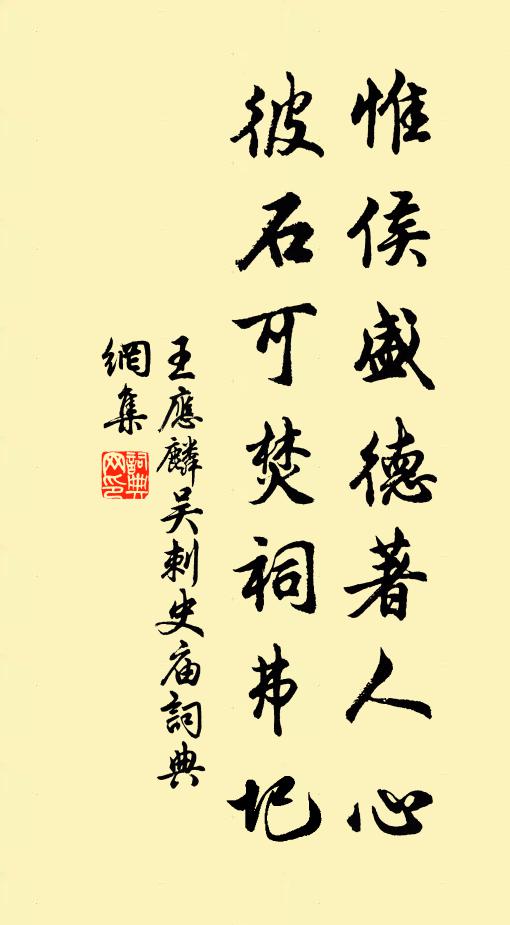 惟侯盛德著人心
彼石可焚祠弗圮
王應麟吴刺史庙詞典
網集
詞典
网印